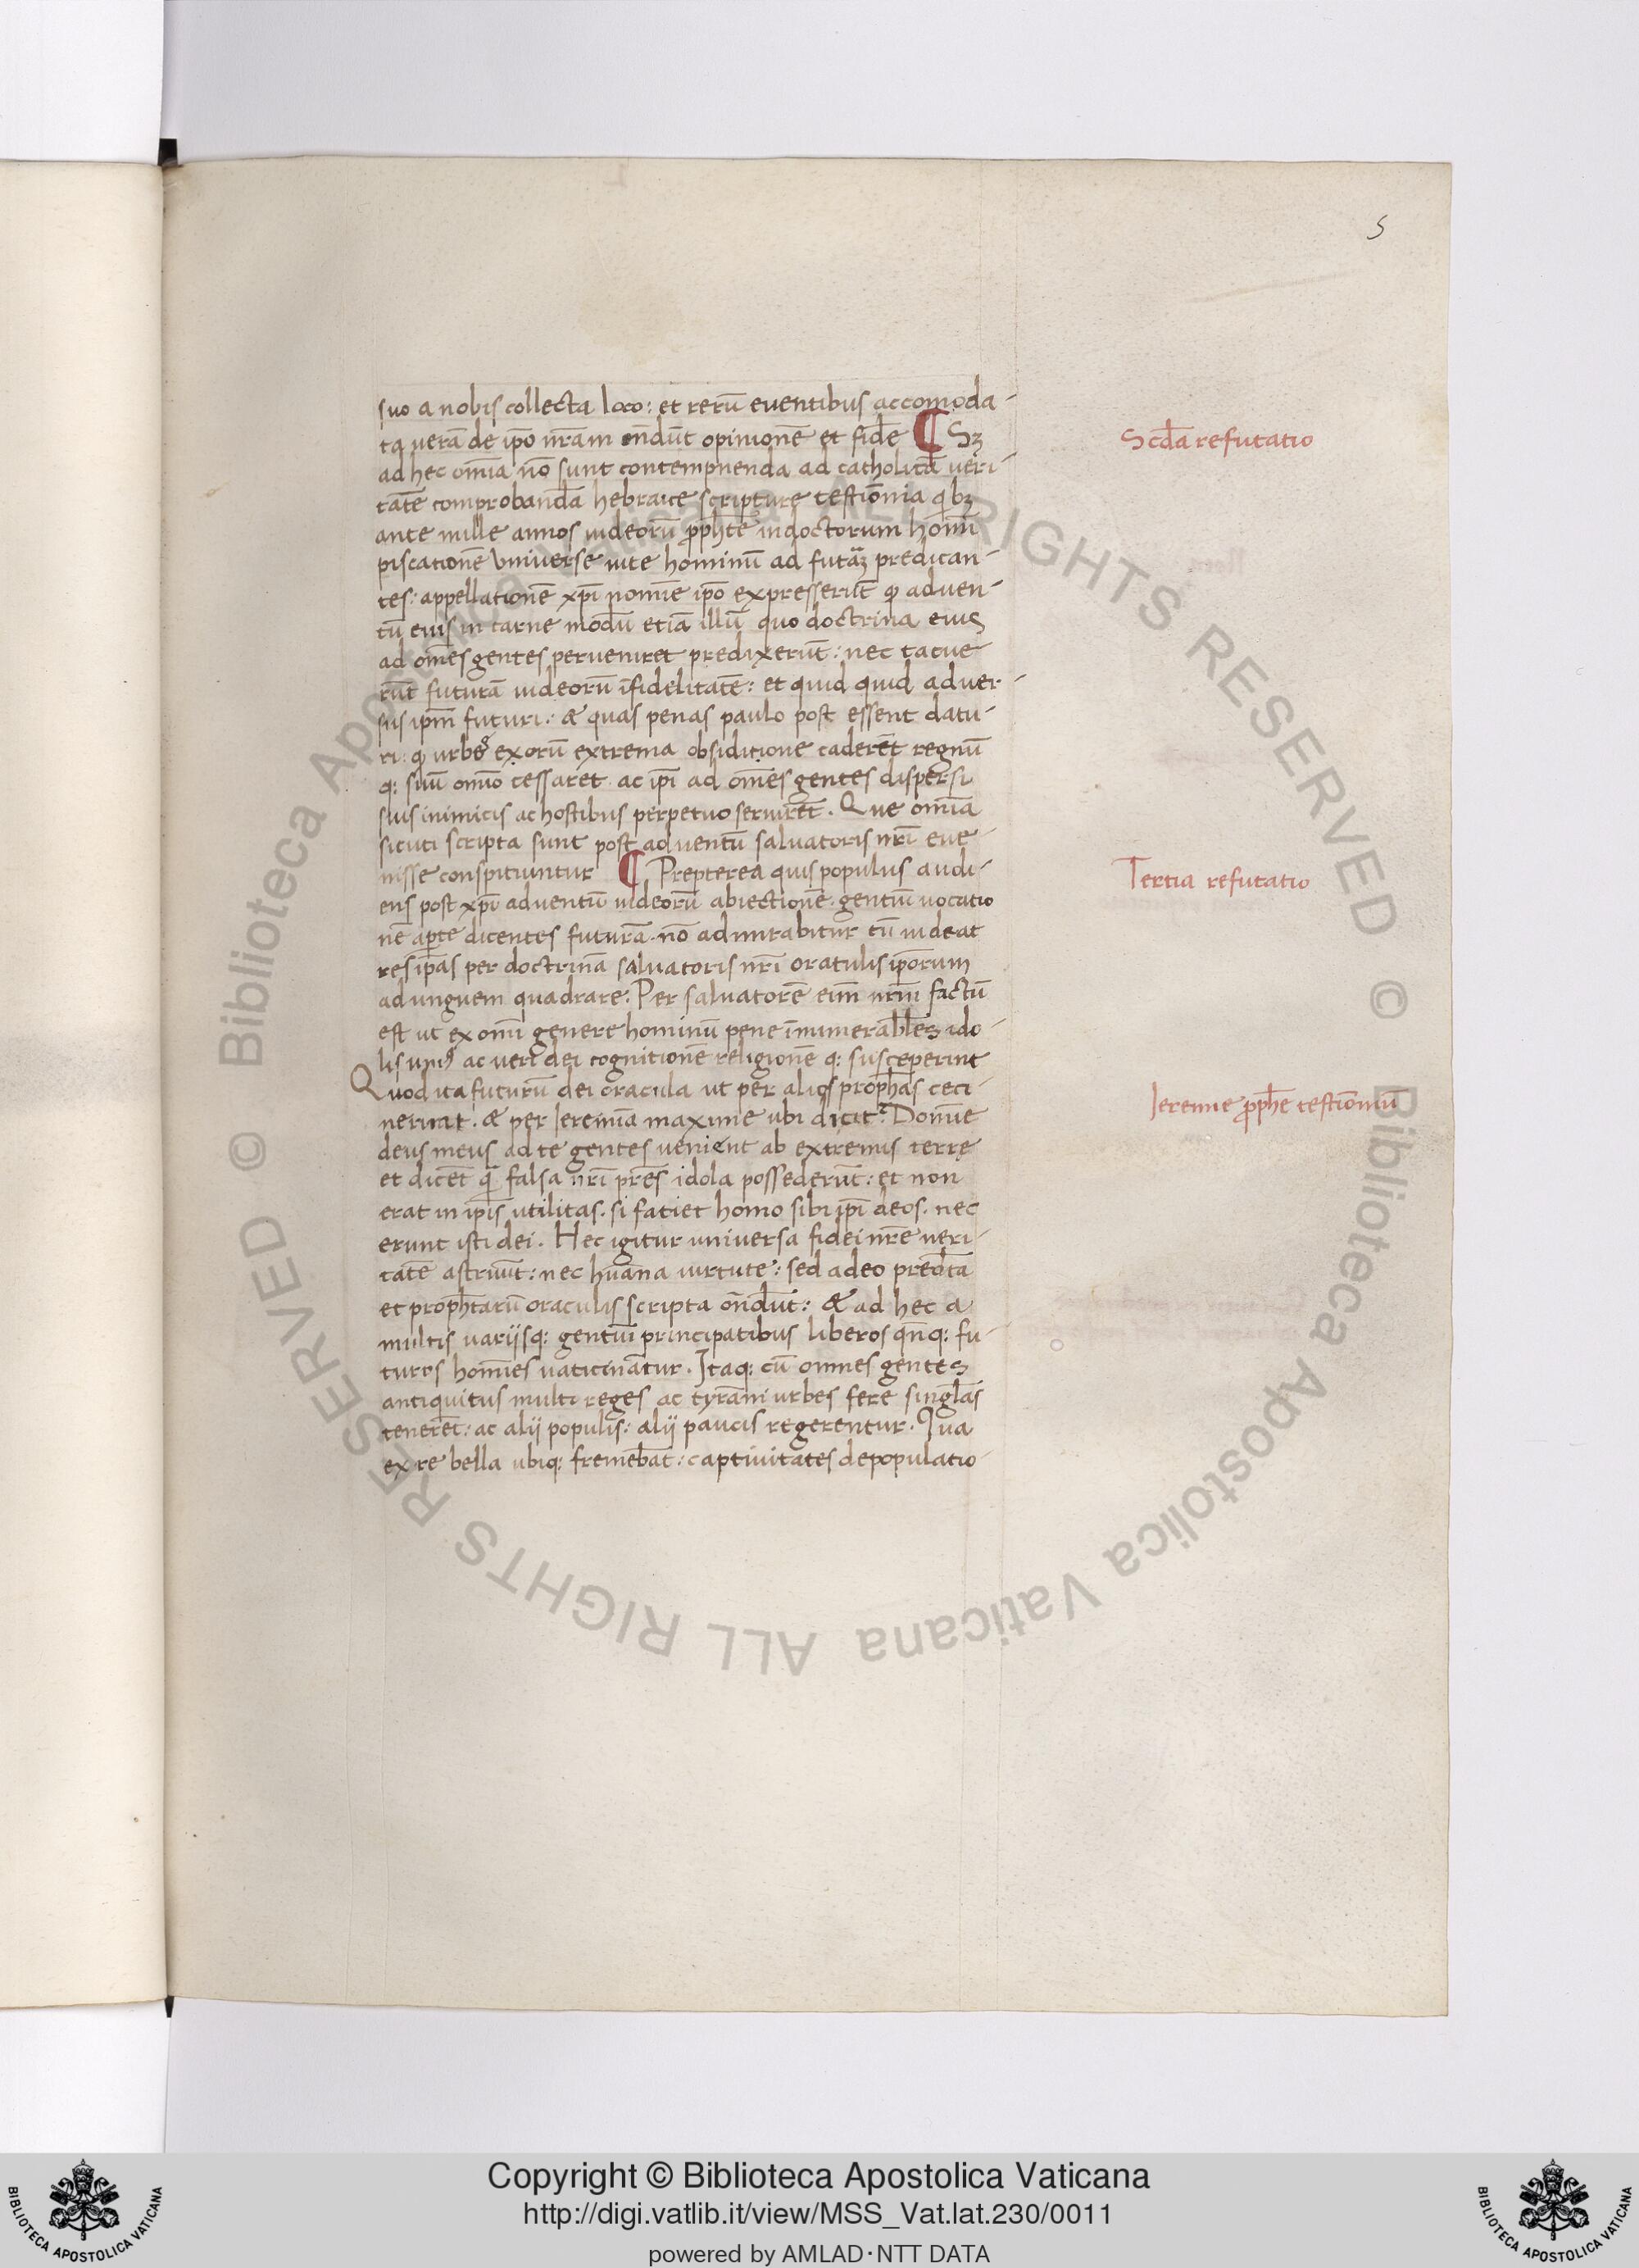 5
suo a nobis collecta loco: et rerū eventibus accomoda-
ta verā de ip̄o nr̄am on̄dūt opinionē et fidē ¶ Sꝫ
ad hec om̄ia nō sunt contempnenda ad catholicā veri-
tatē comprobandā hebraice scripture testiōnia qͥbꝫ
ante mille annos iudeorū ꝓph̄te indoctorum homī
piscationē Universe vite hominū ad futāꝫ predican-
tes: appellationē xp̄i nomīe ip̄o expresserūt ꝙ adven-
tū eius in carne mōdū etiā illū quo doctrina eius
ad om̄es gentes perveniret predixerūt: nec tacue
rūt futurā iudeorū īfidelitatē: et quid quid adver-
sus ip̄m futuri: & quas penas paulo post essent datu-
ri: ꝙ urbs exorū extrema obsiditione caderēt regnū
q: suū om̄o cessaret. ac ip̄i ad om̄es gentes dispersi
suis inimicis ac hostibus perpetuo servirēt. Que om̄ia
sicuti scripta sunt post adventū salvatoris nr̄i eve-
nisse conspitiuntur ¶ Prepterea quis populus audi-
ens post xp̄i adventū iudeorū abiectionē. gentiū vocatio
nē aꝑte dicentes futurā. nō admirabitur cū videat
res ip̄as per doctrinā salvatoris nr̄i oratulis ip̄orum
ad unguem quadrare: Per salvatorē eim̄ nr̄m factū
est ut ex om̄i genere hominū pene īnumerabl̄es ido-
lis uniꝰ ac veri dei cognitionē religionē q: susceperint
Quod ita futurū dei oracula ut per alios proph̄as ceci-
nerunt. & per Ieremiā maxime ubi dicit: Domīe
deus meus ad te gentes venient ab extremis terre
et dicēt qͣ falsa nr̄i pr̄es idola possederūt: et non
erat in ip̄is utilitas. si fatiet homo sibi ip̄i deos. nec
erunt isti dei. Hec igitur universa fidei nr̄e veri-
tatē astruūt: nec huāna virtute: sed a deo predc̄a
et proph̄tarū oraculis scripta on̄dūt: & ad hec a
multis variisq: gentiū principatibus liberos qn̄q: fu-
turos homīes vaticinātur. Itaq: cū omnes gentes
antiquitus multi reges ac tyrāni urbes fere singl̄as
tenerēt: ac alij populis: alij paucis regerentur. Qua
ex re bella ubiq: fremebāt: captivitates depopulatio-
Scd̄a refutatio
Tertia refutatio
Ieremie ꝓph̄e testiōniū
© Biblioteca Apostolica Vaticana ALL RIGHTS RESERVED
© Biblioteca Apostolica Vaticana ALL RIGHTS RESERVED
Copyright © Biblioteca Apostolica Vaticana
http://digi.vatlib.it/view/MSS_Vat.lat.230/0011
powered by AMLAD·NTT DATA
BIBLIOTECA APOSTOLICA VATICANA
BIBLIOTECA APOSTOLICA VATICANA